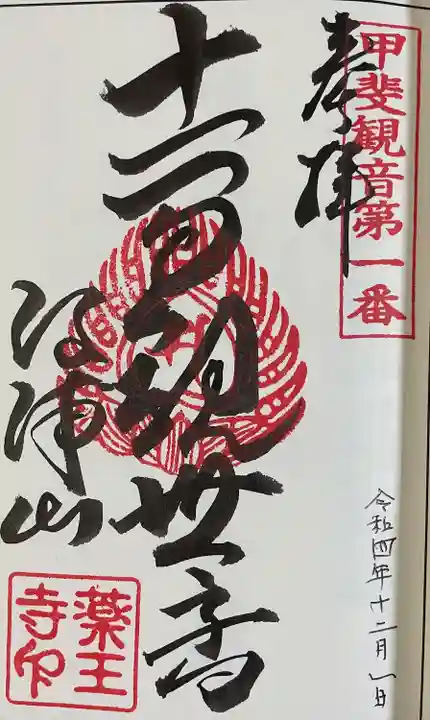 甲斐観音第一番
奉拝
令和四年十二月一日
十一面観世音
法津山
薬王
寺印